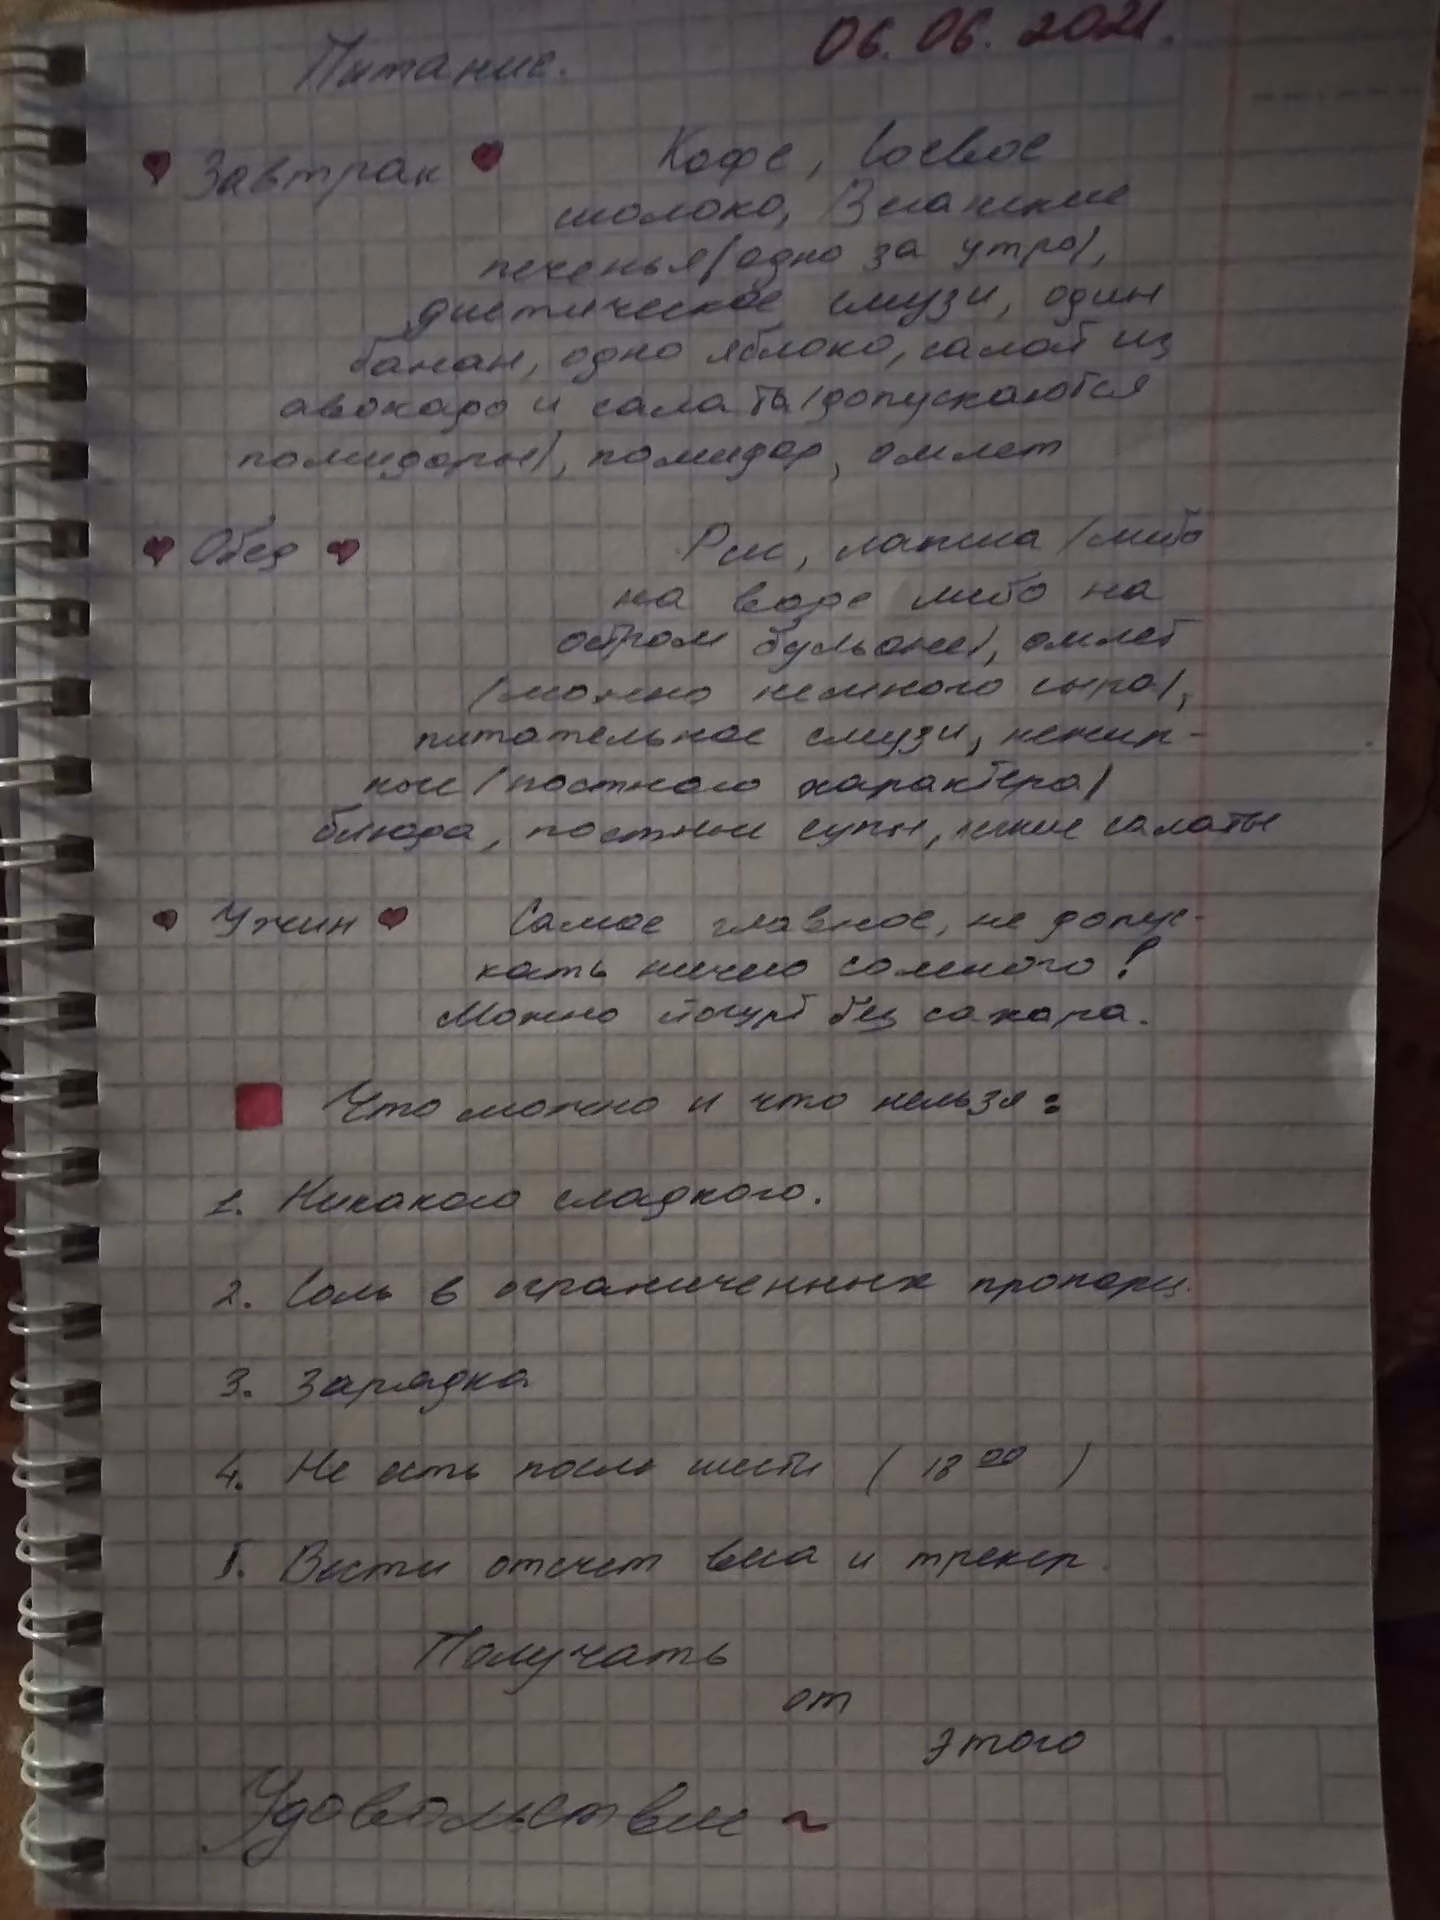 Питание. 06.06.2021.
Завтрак Кофе, Соевое
молоко, Веганские
печенья (одно за утро),
диетическое смузи, один
банан, одно яблоко, салат из
авокадо и салата (допускаются
помидоры), помидор, омлет
Обед Рис, лапша (либо
на воде либо на
остром бульоне), омлет
(можно немного сыра),
питательное смузи, нежир-
ные (постного характера)
блюда, постные супы, легкие салаты
Ужин Самое главное, не допус-
кать ничего соленого!
Можно йогурт без сахара.
Что можно и что нельзя:
1. Никакого сладкого.
2. Соль в ограниченных пропорц.
3. Зарядка
4. Не есть после шести (18 00)
5. Вести отсчет веса и трекер.
Получать
от
этого
Удовольствие ~